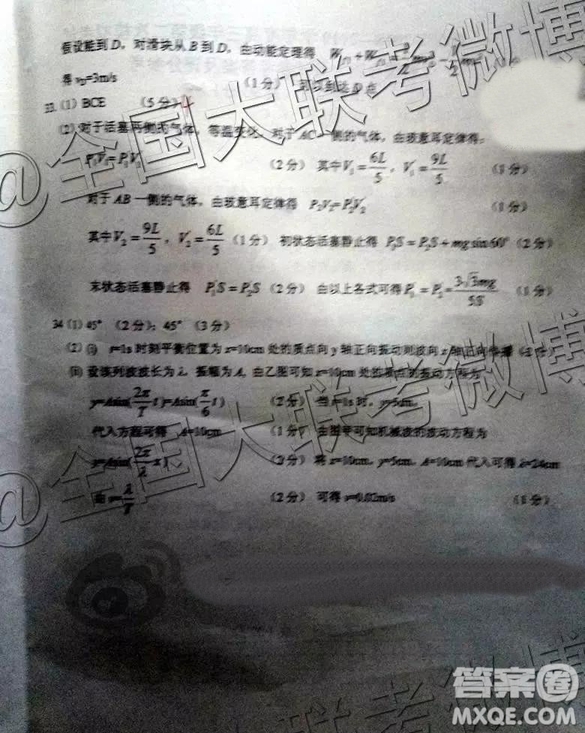 假设能到 D，对滑块从 B 到 D，由动能定理得
得 v_D=3m/s （1 分） 可以到达 D 点
33.（1）BCE （5 分）
（2）对于活塞两侧的气体，等温变化，对于 AC 一侧的气体，由玻意耳定律得：
P₁V₁=P₁'V₁' （2 分） 其中V₁=6L/5，V₁'=9L/5 （1 分）
对于 AB 一侧的气体，由玻意耳定律得 P₂V₂=P₂'V₂' （1 分）
其中V₂=9L/5，V₂'=6L/5（1 分） 初状态活塞静止得 P₁S=P₂S+mg sin60°（2 分）
末状态活塞静止得 P₁'S=P₂'S（2 分） 由以上各式可得P₁'=P₂'=3√3mg/5S （1 分）
34（1）45° （2 分）；45° （3 分）
（2）（i） t=1s 时刻平衡位置为 x=10cm 处的质点向 y 轴正向振动则波向 x 轴正向传播
（ii）设该列波波长为 λ，振幅为 A，由乙图可知 x=10cm 处的质点的振动方程为
y=Asin(2π/T t)=Asin(π/6 t) （2 分） 当 t=1s 时，y=5cm，
代入方程可得 A=10cm （1 分） 由图甲可知机械波的波动方程为
y=Asin(2π/λ x) （2分） 将 x=10cm，y=5cm，A=10cm 代入可得 λ=24cm
由 v=λ/T （2 分） 可得 v=0.02m/s （1 分）
@全国大联考微博
@全国大联考微博
答案圈
MXQE.COM